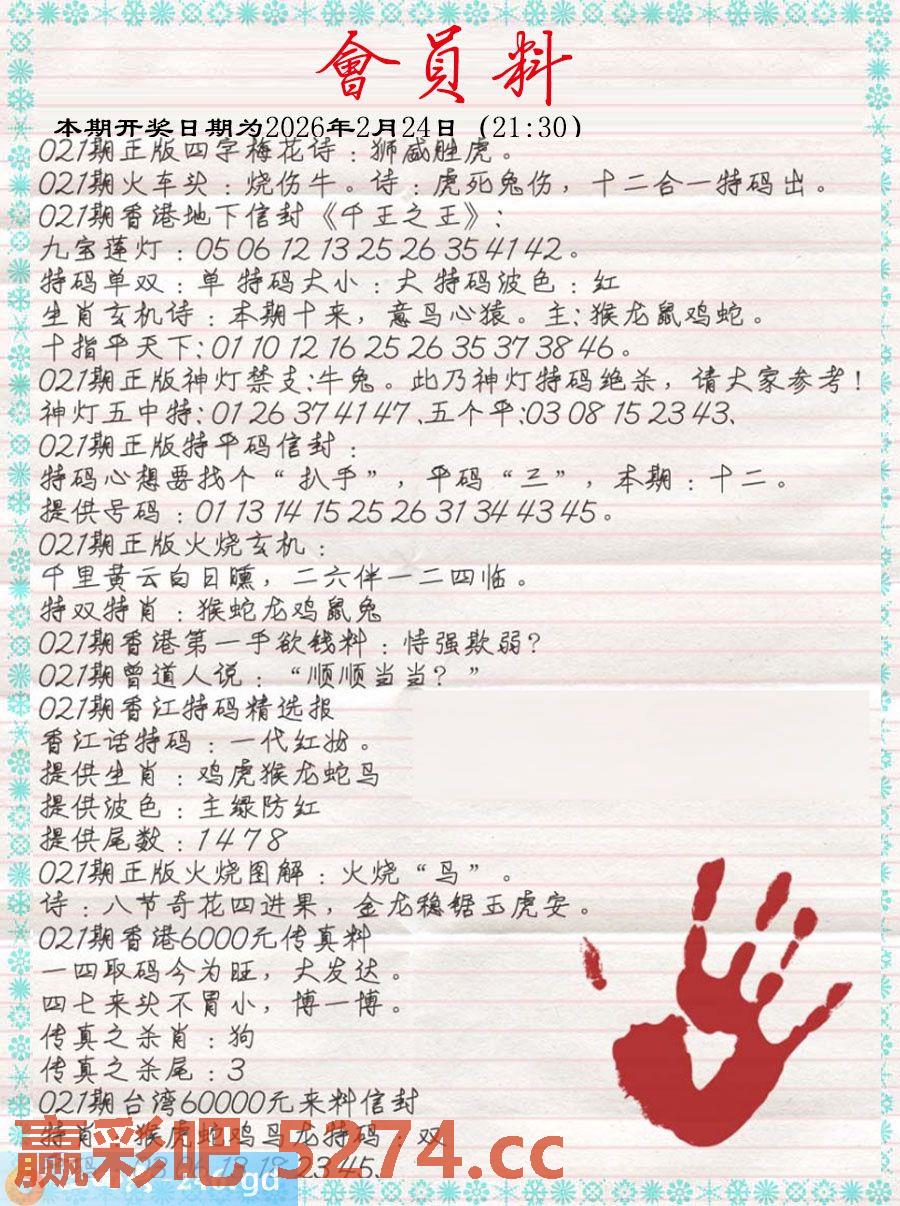 會員料
本期开奖日期为2026年2月24日（21:30）
021期正版四字梅花诗：狮威胜虎。
021期火车头：烧伤牛。诗：虎死兔伤，十二合一特码出。
021期香港地下信封《千王之王》：
九宝莲灯：05 06 12 13 25 26 35 41 42。
特码单双：单 特码大小：大 特码波色：红
生肖玄机诗：本期十来，意鸟心猿。主：猴龙鼠鸡蛇。
十指平天下：01 10 12 16 25 26 35 37 38 46。
021期正版神灯禁支：牛兔。此乃神灯特码绝杀，请大家参考！
神灯五中特：01 26 37 41 47、五个平：03 08 15 23 43、
021期正版特平码信封：
特码心想要找个“扒手”，平码“三”，本期：十二。
提供号码：01 13 14 15 25 26 31 34 43 45。
021期正版火烧玄机：
千里黄云白日曛，二六伴一二四临。
特双特肖：猴蛇龙鸡鼠兔
021期香港第一手欲钱料：恃强欺弱？
021期曾道人说：“顺顺当当？”
021期香江特码精选报
香江话特码：一代红妆。
提供生肖：鸡虎猴龙蛇鸟
提供波色：主绿防红
提供尾数：1 4 7 8
021期正版火烧图解：火烧“鸟”。
诗：八节奇花四进果，金龙稳锯玉虎安。
021期香港6000元传真料
一四取码今为旺，大发达。
四七来头不冒小，博一博。
传真之杀肖：狗
传真之杀尾：3
021期台湾60000元来料信封
特肖：猴虎蛇鸡马龙特码：双
18 23 45、
赢彩吧.5274.cc